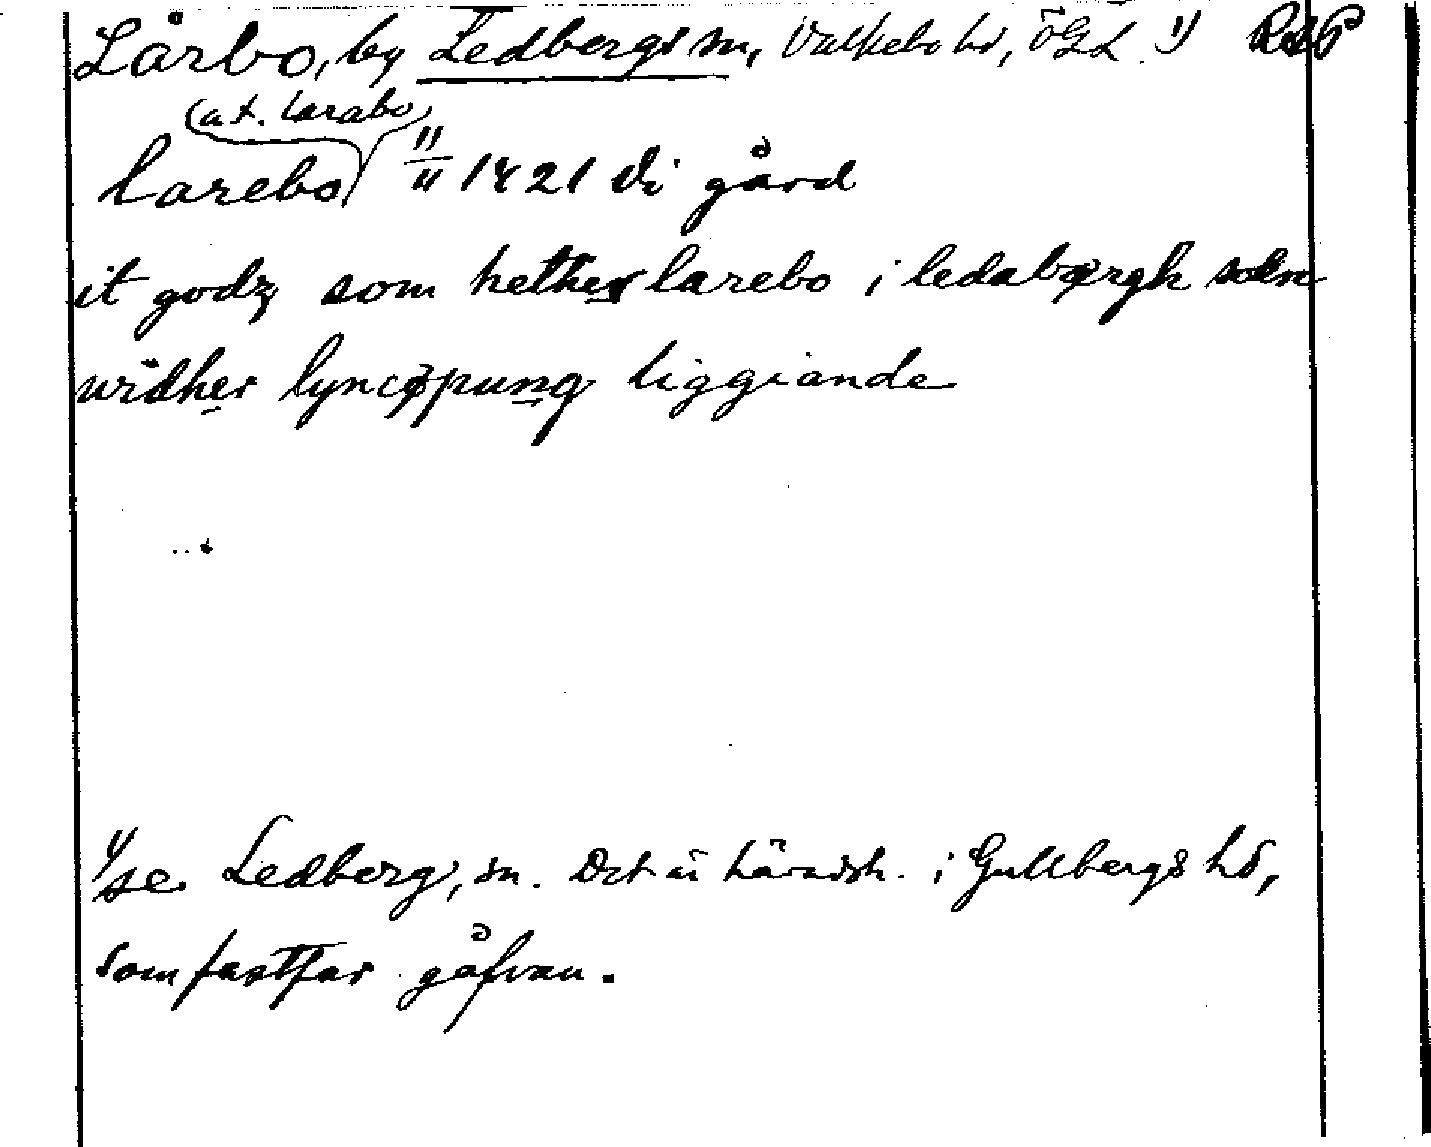 Lårbo, by Ledbergs sn, Valkebo hd, ÖGL 1) RAP
(a t. larabo)
larebo 11/11 1421 Di gård
it godz som hether larebo i ledabærgh sokn
widher lyncøpung liggiande
1) se Ledberg, sn. Det är häradsh. i Gullbergs hd,
som fastfar gåfvan.